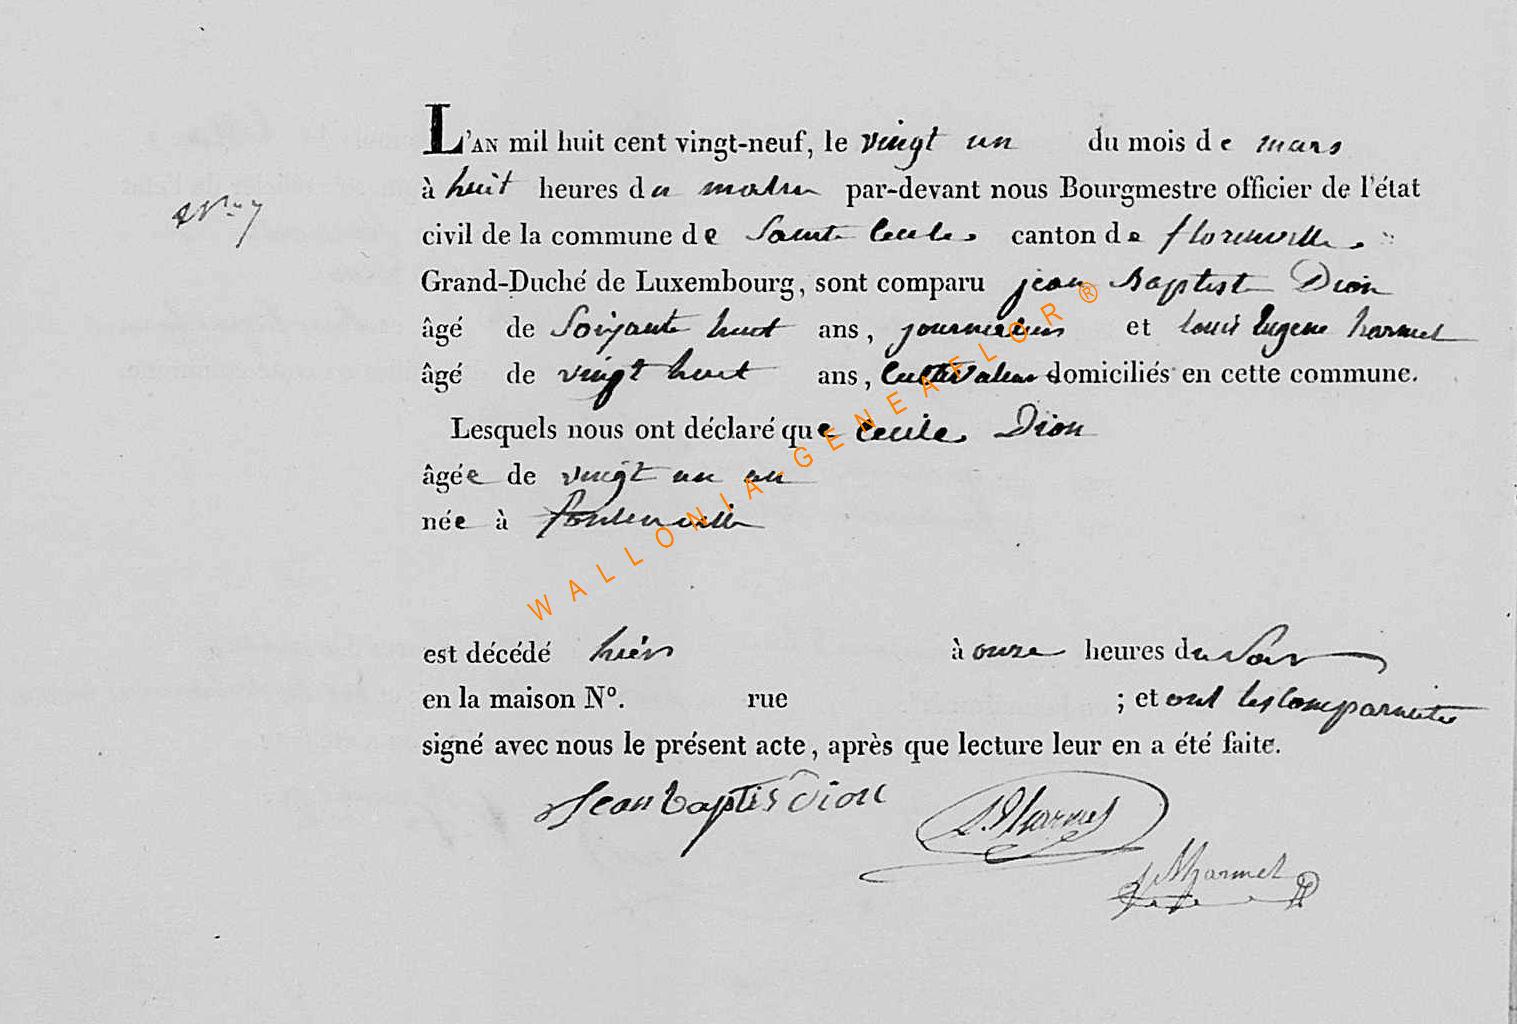 L'AN mil huit cent vingt-neuf, le vingt un du mois de mars
à huit heures du matin par-devant nous Bourgmestre officier de l'état
N° 7
civil de la commune de Sainte Cecile canton de florenville
Grand-Duché de Luxembourg, sont comparu jean Baptiste Dion
âgé de Soixante huit ans, journalier et louis Eugene harmel
âgé de vingt huit ans, Cultivateur domiciliés en cette commune.
Lesquels nous ont déclaré que Cecile Dion
âgée de vingt un an
née à
est décédé hier à onze heures du Soir
en la maison N°. rue ; et ont les Comparants
signé avec nous le présent acte, après que lecture leur en a été faite.
Jean baptis Dion
Harmel
Harmel
WALLONIA-GENEAFLOR®